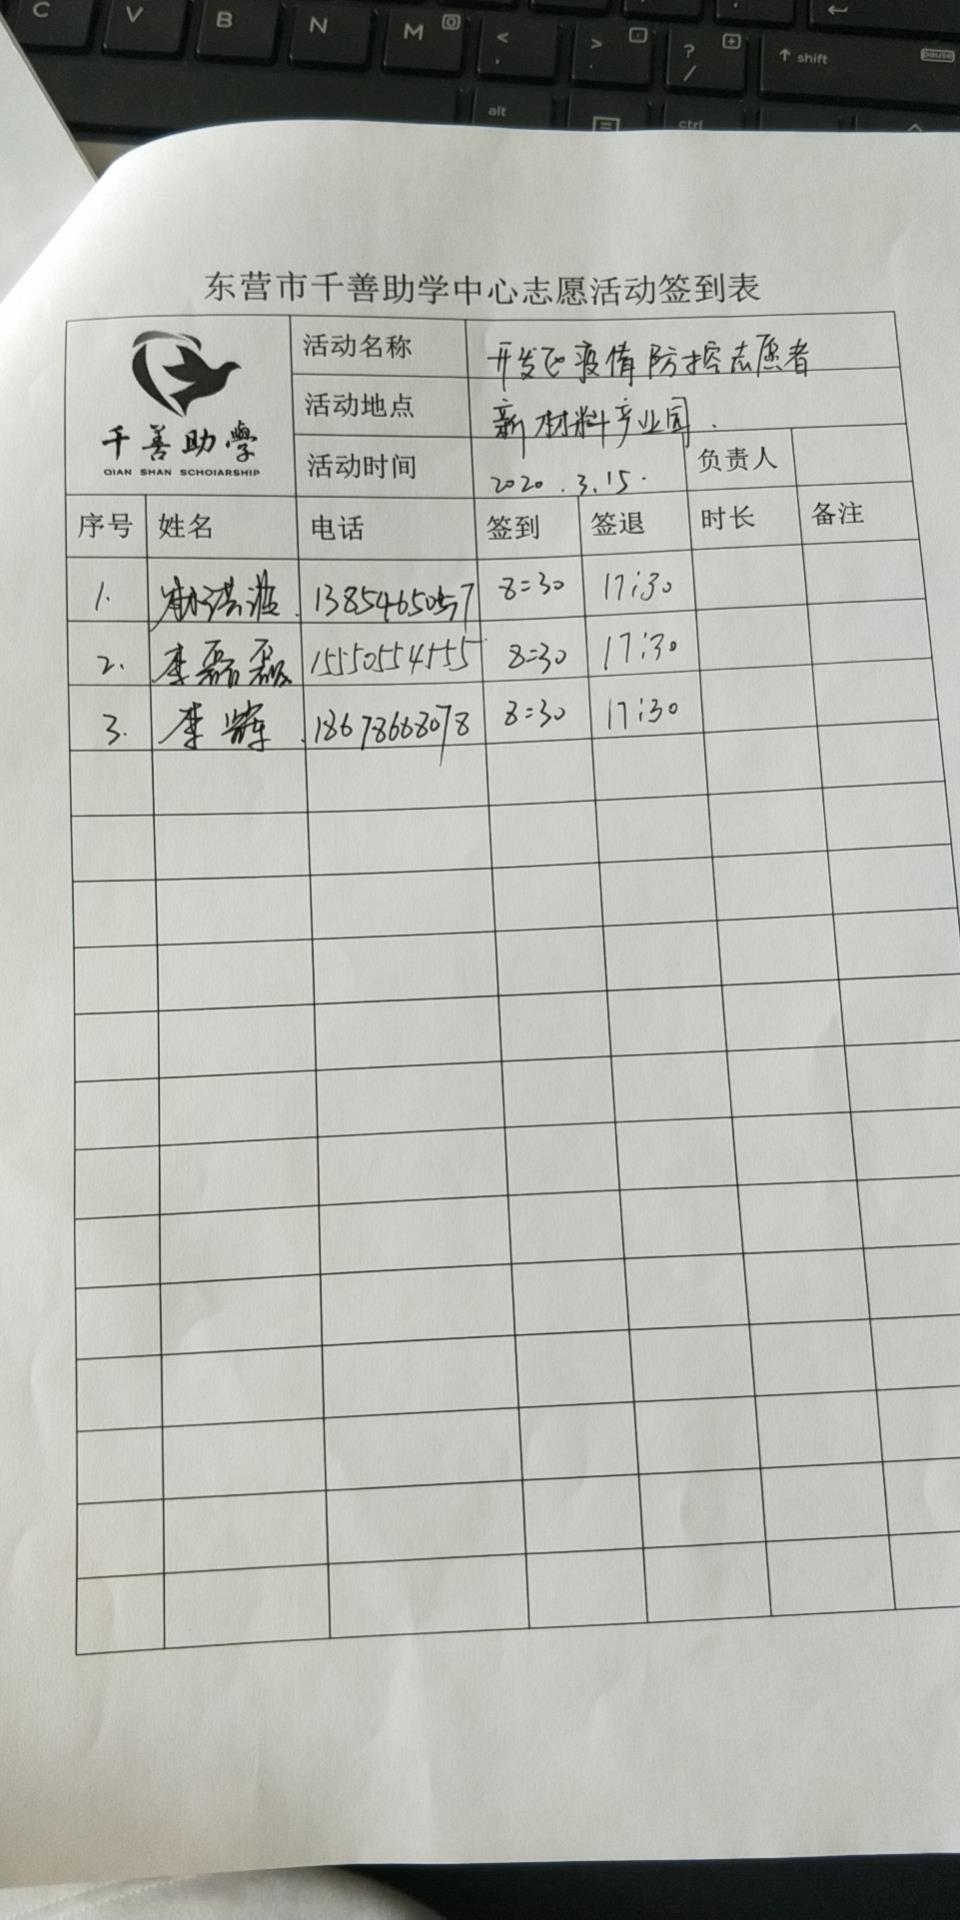 C V B N M < , > . ? / ↑ shift pause
alt ctrl
东营市千善助学中心志愿活动签到表
千善助學
QIAN SHAN SCHOIARSHIP
活动名称 开发区疫情防控志愿者
活动地点 新材料产业园.
活动时间 2020.3.15. 负责人
序号 姓名 电话 签到 签退 时长 备注
1. 8:30 17:30
2. 李磊磊 15550554155 8:30 17:30
3. 李辉 18678668078 8:30 17:30